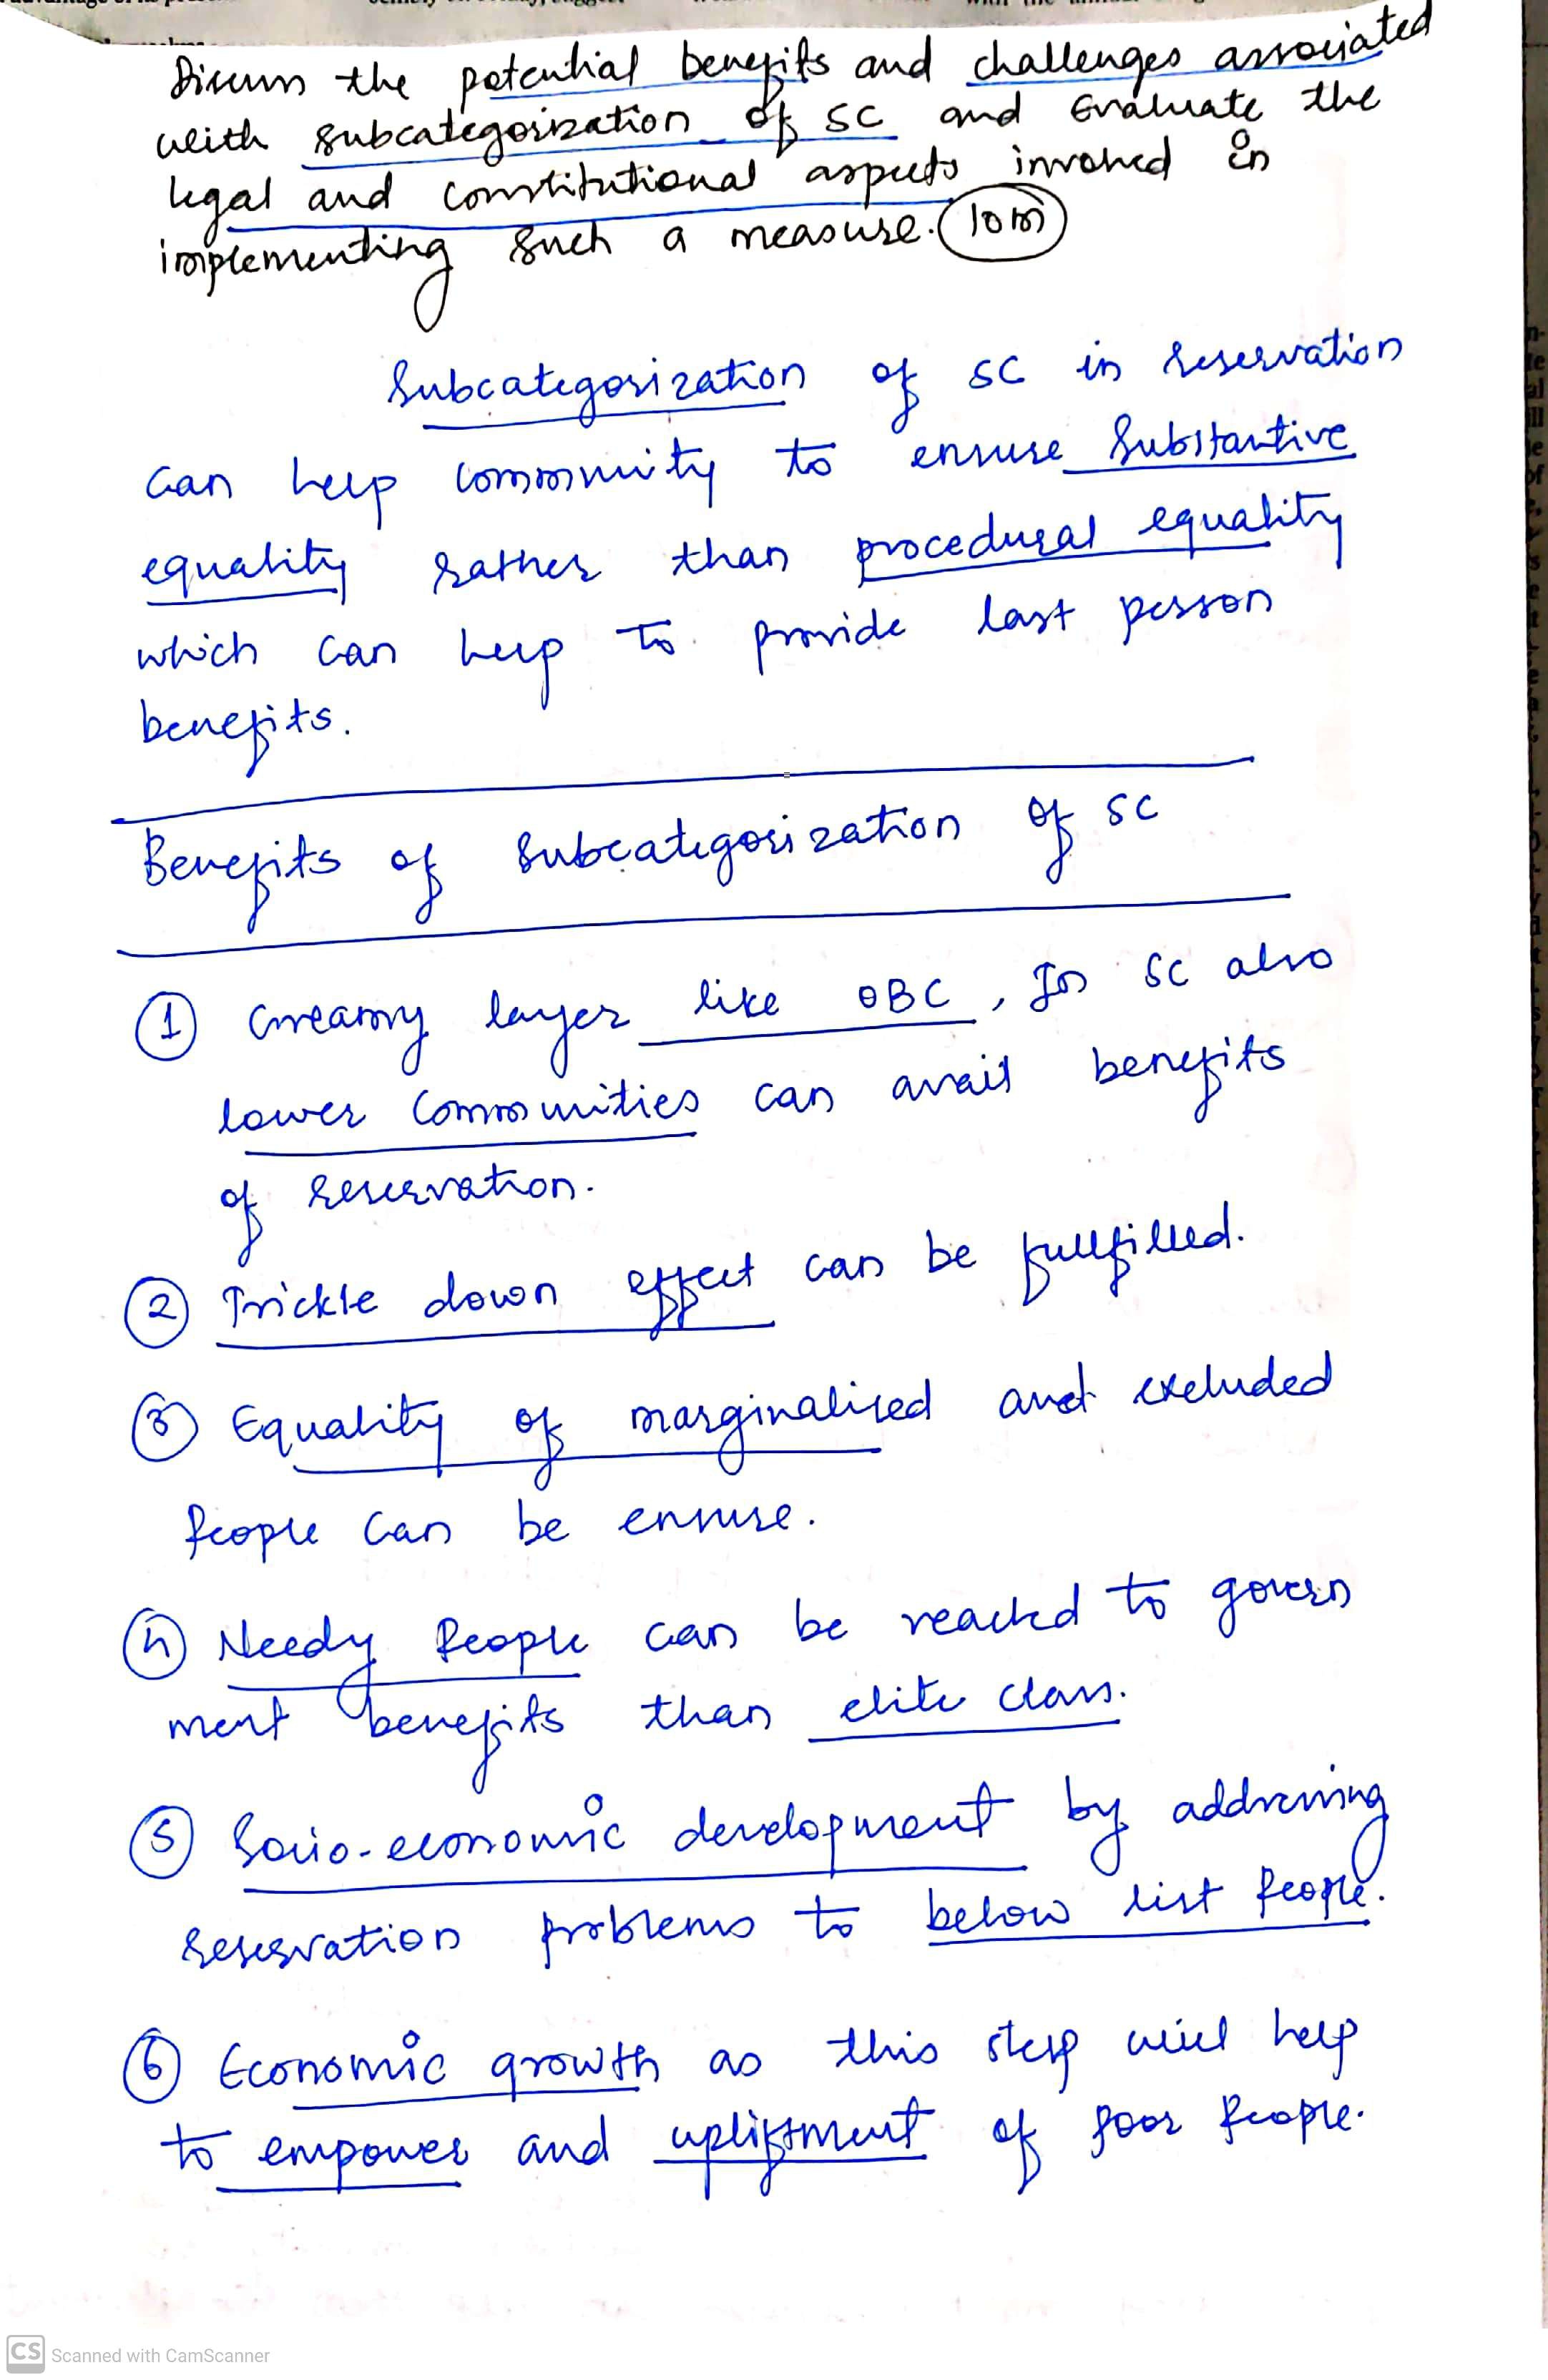 Discuss the potential benefits and challenges associated
with subcategorization of SC and Evaluate the
legal and constitutional aspects involved in
implementing such a measure. (10m)
Subcategorization of SC in reservation
can help community to ensure Substantive
equality rather than procedural equality
which can help to provide last person
benefits.
Benefits of Subcategorization of SC
① Creamy layer like OBC, for SC also
lower Communities can avail benefits
of reservation.
② Trickle down effect can be fullfilled.
③ Equality of marginalised and excluded
People can be ensure.
④ Needy People can be reached to govern
ment benefits than elite class.
⑤ Socio-economic development by addressing
reservation problems to below list People.
⑥ Economic growth as this step will help
to empower and upliftment of poor People.
CS Scanned with CamScanner